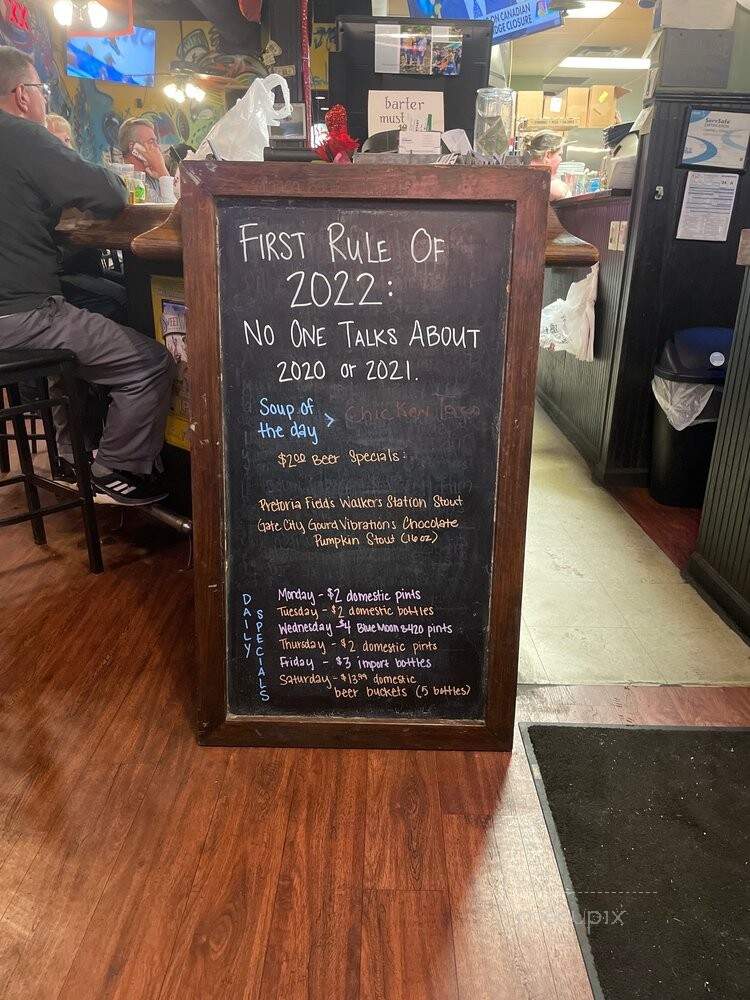 ON CANADIAN
DGE CLOSURE
barter
must
ServSafe
FIRST RULE OF
2022:
NO ONE TALKS ABOUT
2020 or 2021.
Soup of
the day > Chicken Taco
$2.00 Beer Specials:
Pretoria Fields Walkers Station Stout
Gate City Gourd Vibrations Chocolate
Pumpkin Stout (16 oz)
DAILY
SPECIALS
Monday - $2 domestic pints
Tuesday - $2 domestic bottles
Wednesday - $4 Blue Moon & 420 pints
Thursday - $2 domestic pints
Friday - $3 import bottles
Saturday - $13.99 domestic
beer buckets (5 bottles)